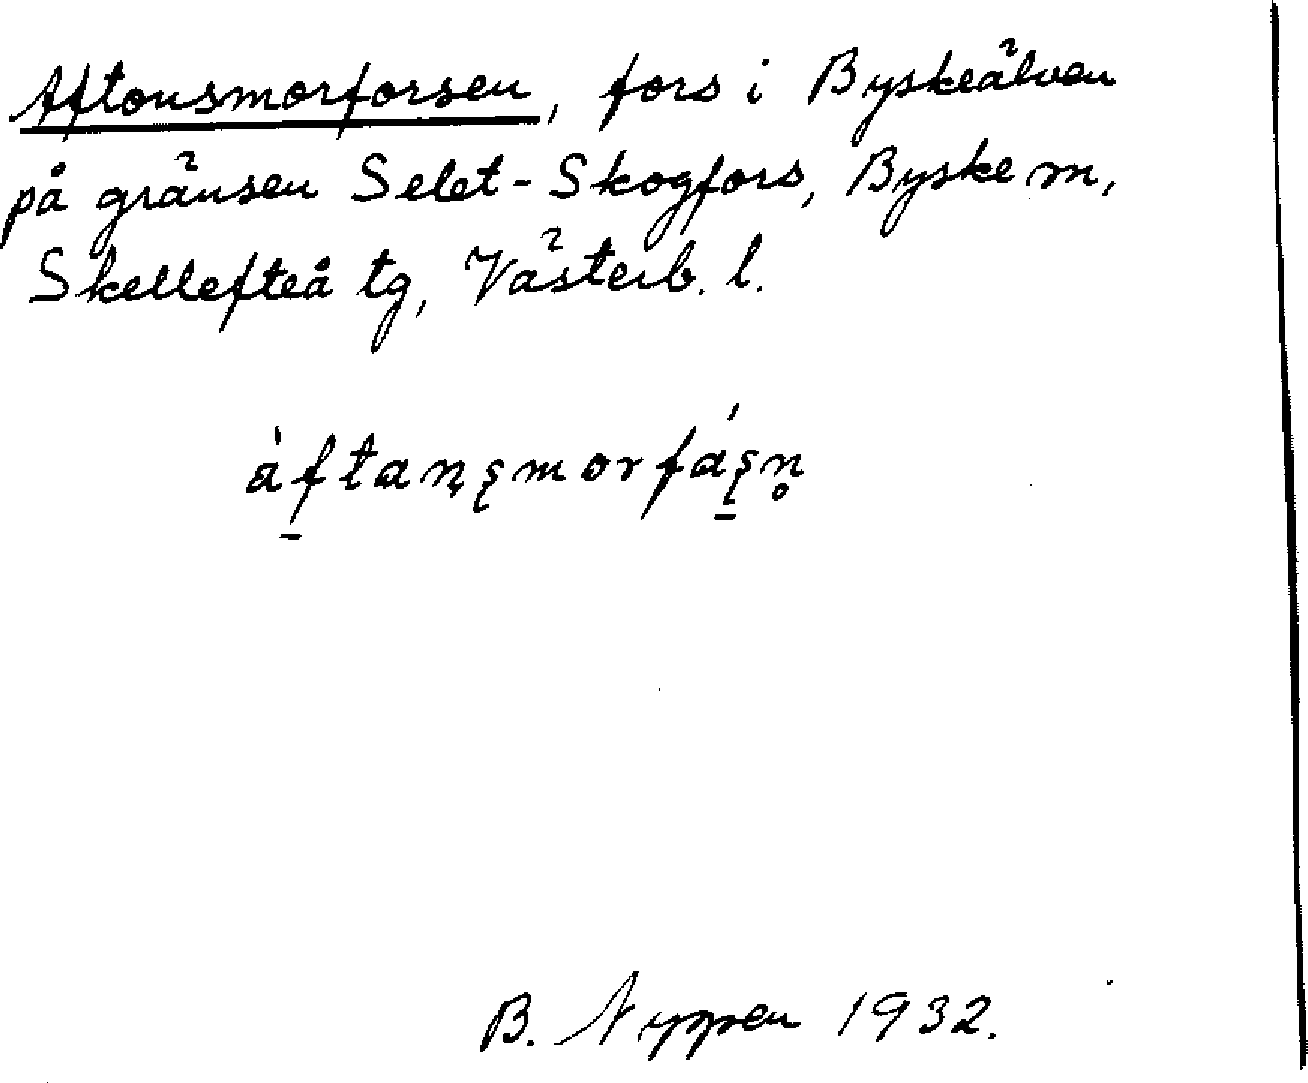 Aftonsmorforsen, fors i Byskeälven
på gränsen Selet-Skogfors, Byske m,
Skellefteå tg, Västerb. l.
àf̲tanşmorfáş̲n̥
B. Nyppen 1932.